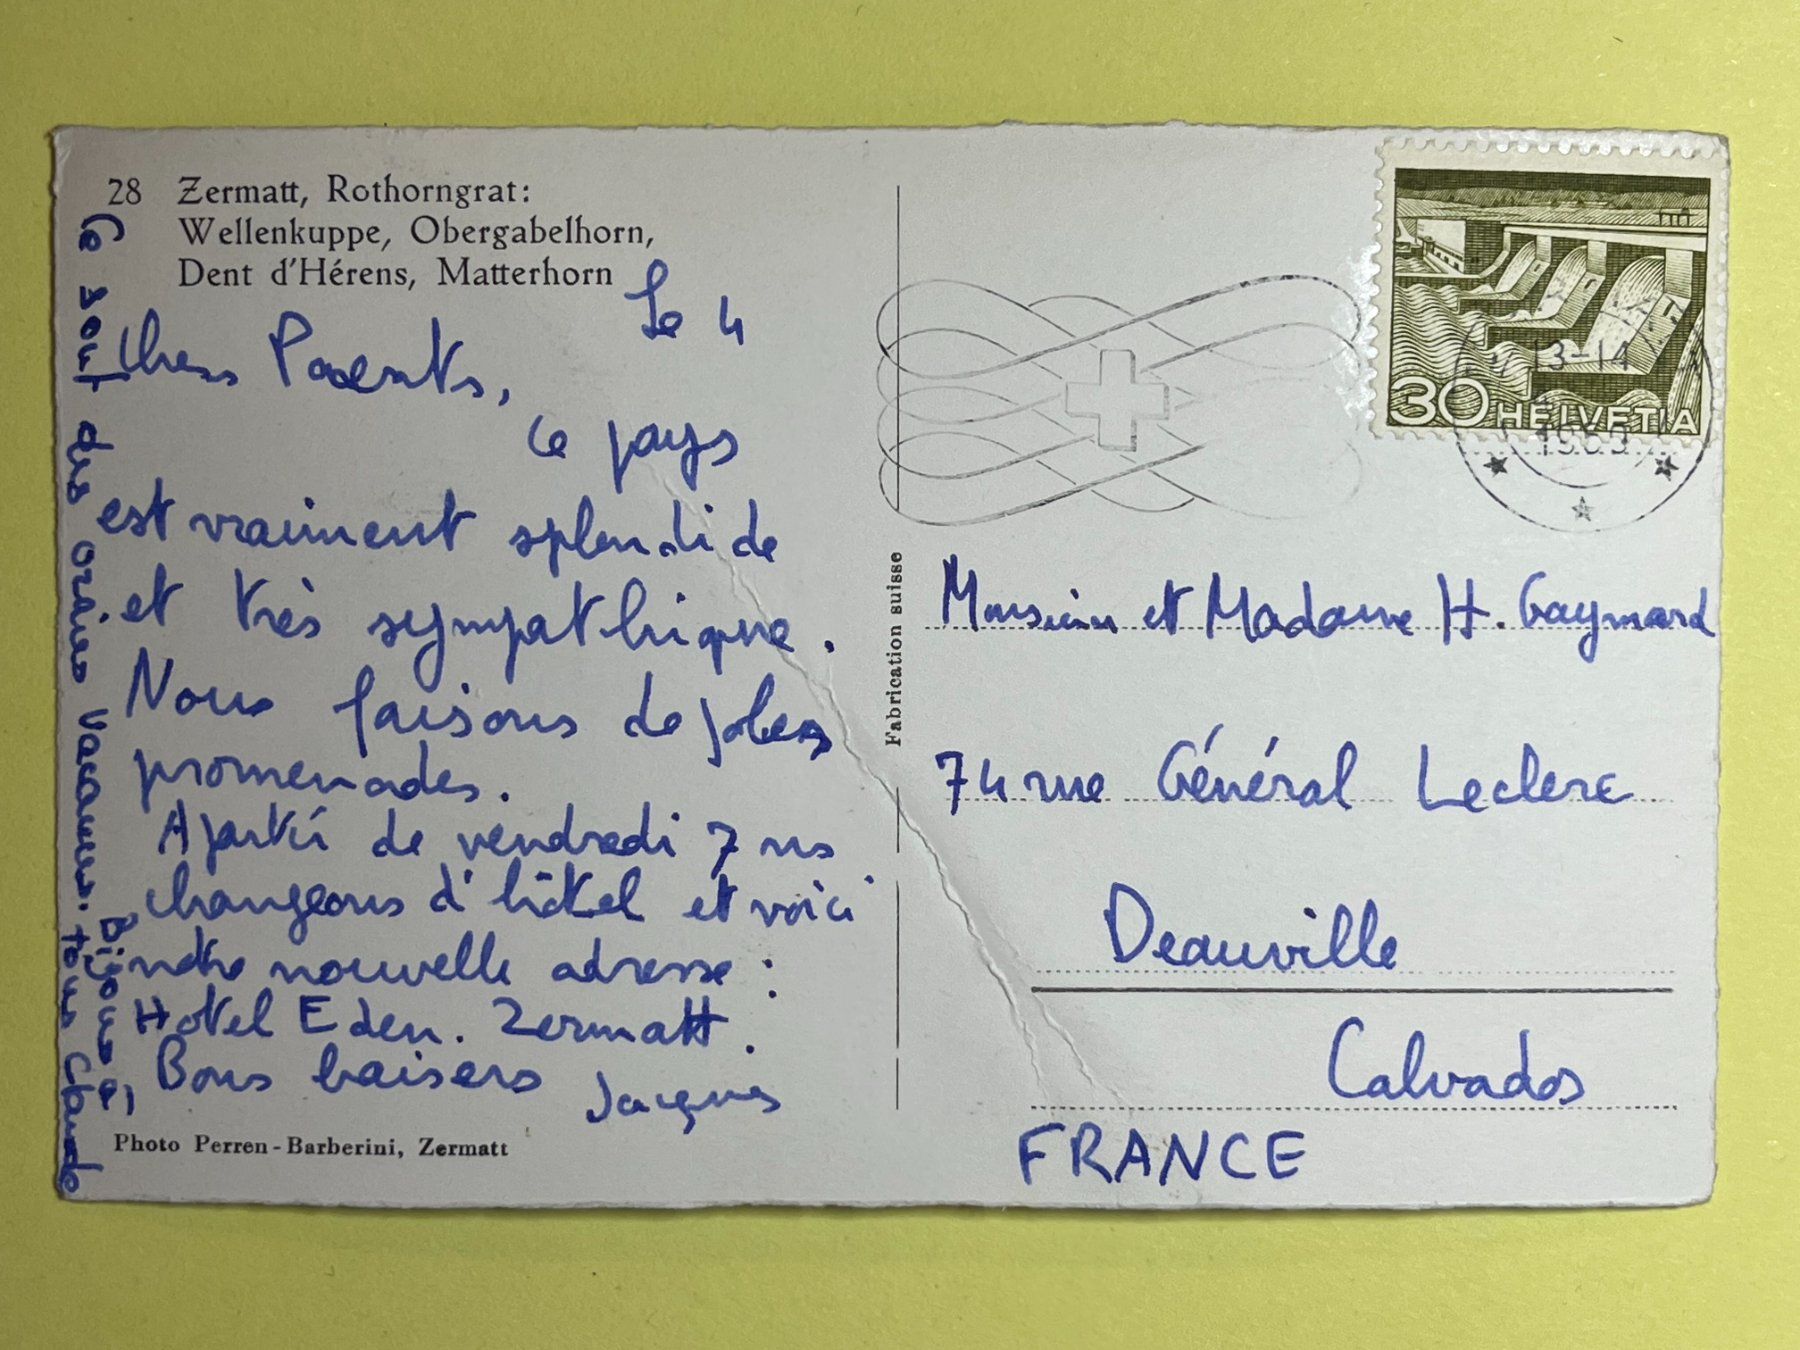 28 Zermatt, Rothorngrat:
Wellenkuppe, Obergabelhorn,
Dent d'Hérens, Matterhorn
Le 4
Chers Parents,
Ce pays
est vraiment splendide
et très sympathique.
Nous faisons de jolies
promenades.
A partir de vendredi 7 ns
changeons d'hôtel et voici
notre nouvelle adresse :
Hotel Eden. Zermatt.
Bons baisers Jacques
Ce sont des vraies vacances.
Bisous à
tous Claude
Photo Perren-Barberini, Zermatt
Fabrication suisse
30 HELVETIA
13-14
Monsieur et Madame H. Gaymard
74 rue Général Leclerc
Deauville
Calvados
FRANCE